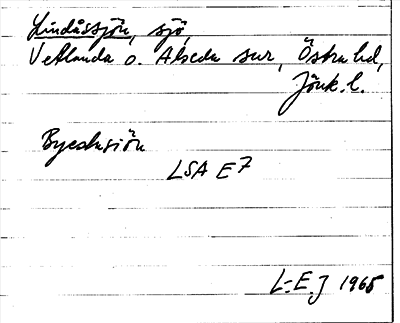 Lindåssjön, sjö,
Vetlanda o. Alseda snr, Östra hd,
Jönk. l.
Byealasjön
LSA E7
L-E.J 1965